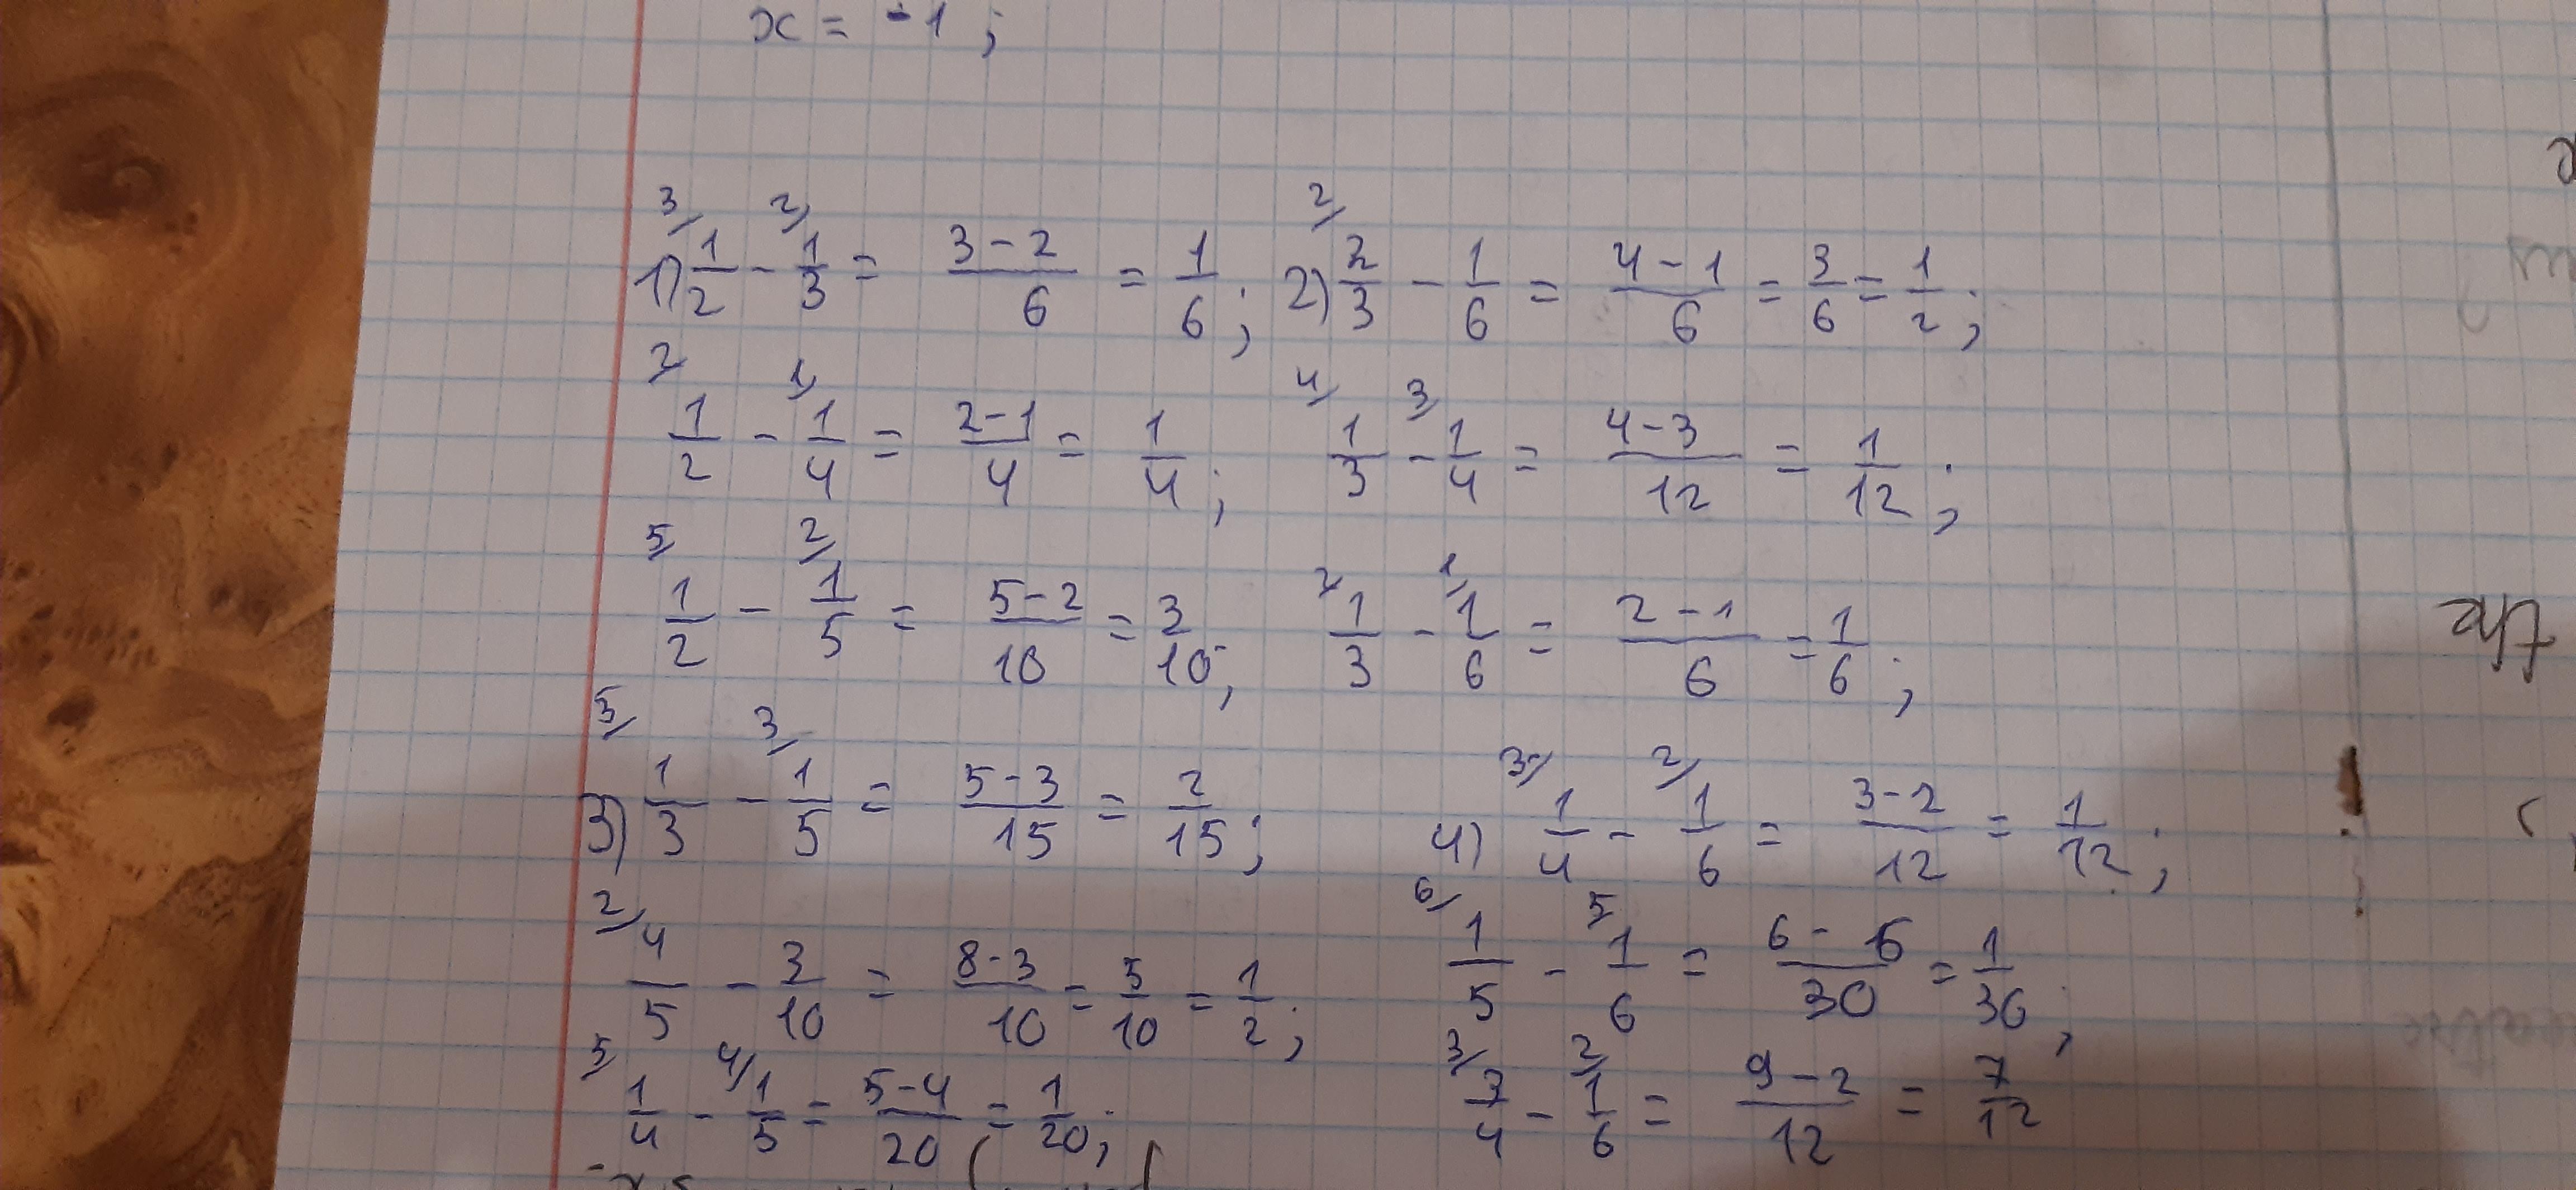 x = -1;
3/ 2/ 2/
1) 1/2 - 1/3 = (3-2)/6 = 1/6; 2) 2/3 - 1/6 = (4-1)/6 = 3/6 = 1/2;
2/ 1/ 4/ 3/
1/2 - 1/4 = (2-1)/4 = 1/4; 1/3 - 1/4 = (4-3)/12 = 1/12;
5/ 2/ 2/ 1/
1/2 - 1/5 = (5-2)/10 = 3/10; 1/3 - 1/6 = (2-1)/6 = 1/6;
5/ 3/ 3/ 2/
3) 1/3 - 1/5 = (5-3)/15 = 2/15; 4) 1/4 - 1/6 = (3-2)/12 = 1/12;
2/ 6/ 5/
4/5 - 3/10 = (8-3)/10 = 5/10 = 1/2; 1/5 - 1/6 = (6-5)/30 = 1/30;
5/ 4/ 3/ 2/
1/4 - 1/5 = (5-4)/20 = 1/20; 3/4 - 1/6 = (9-2)/12 = 7/12